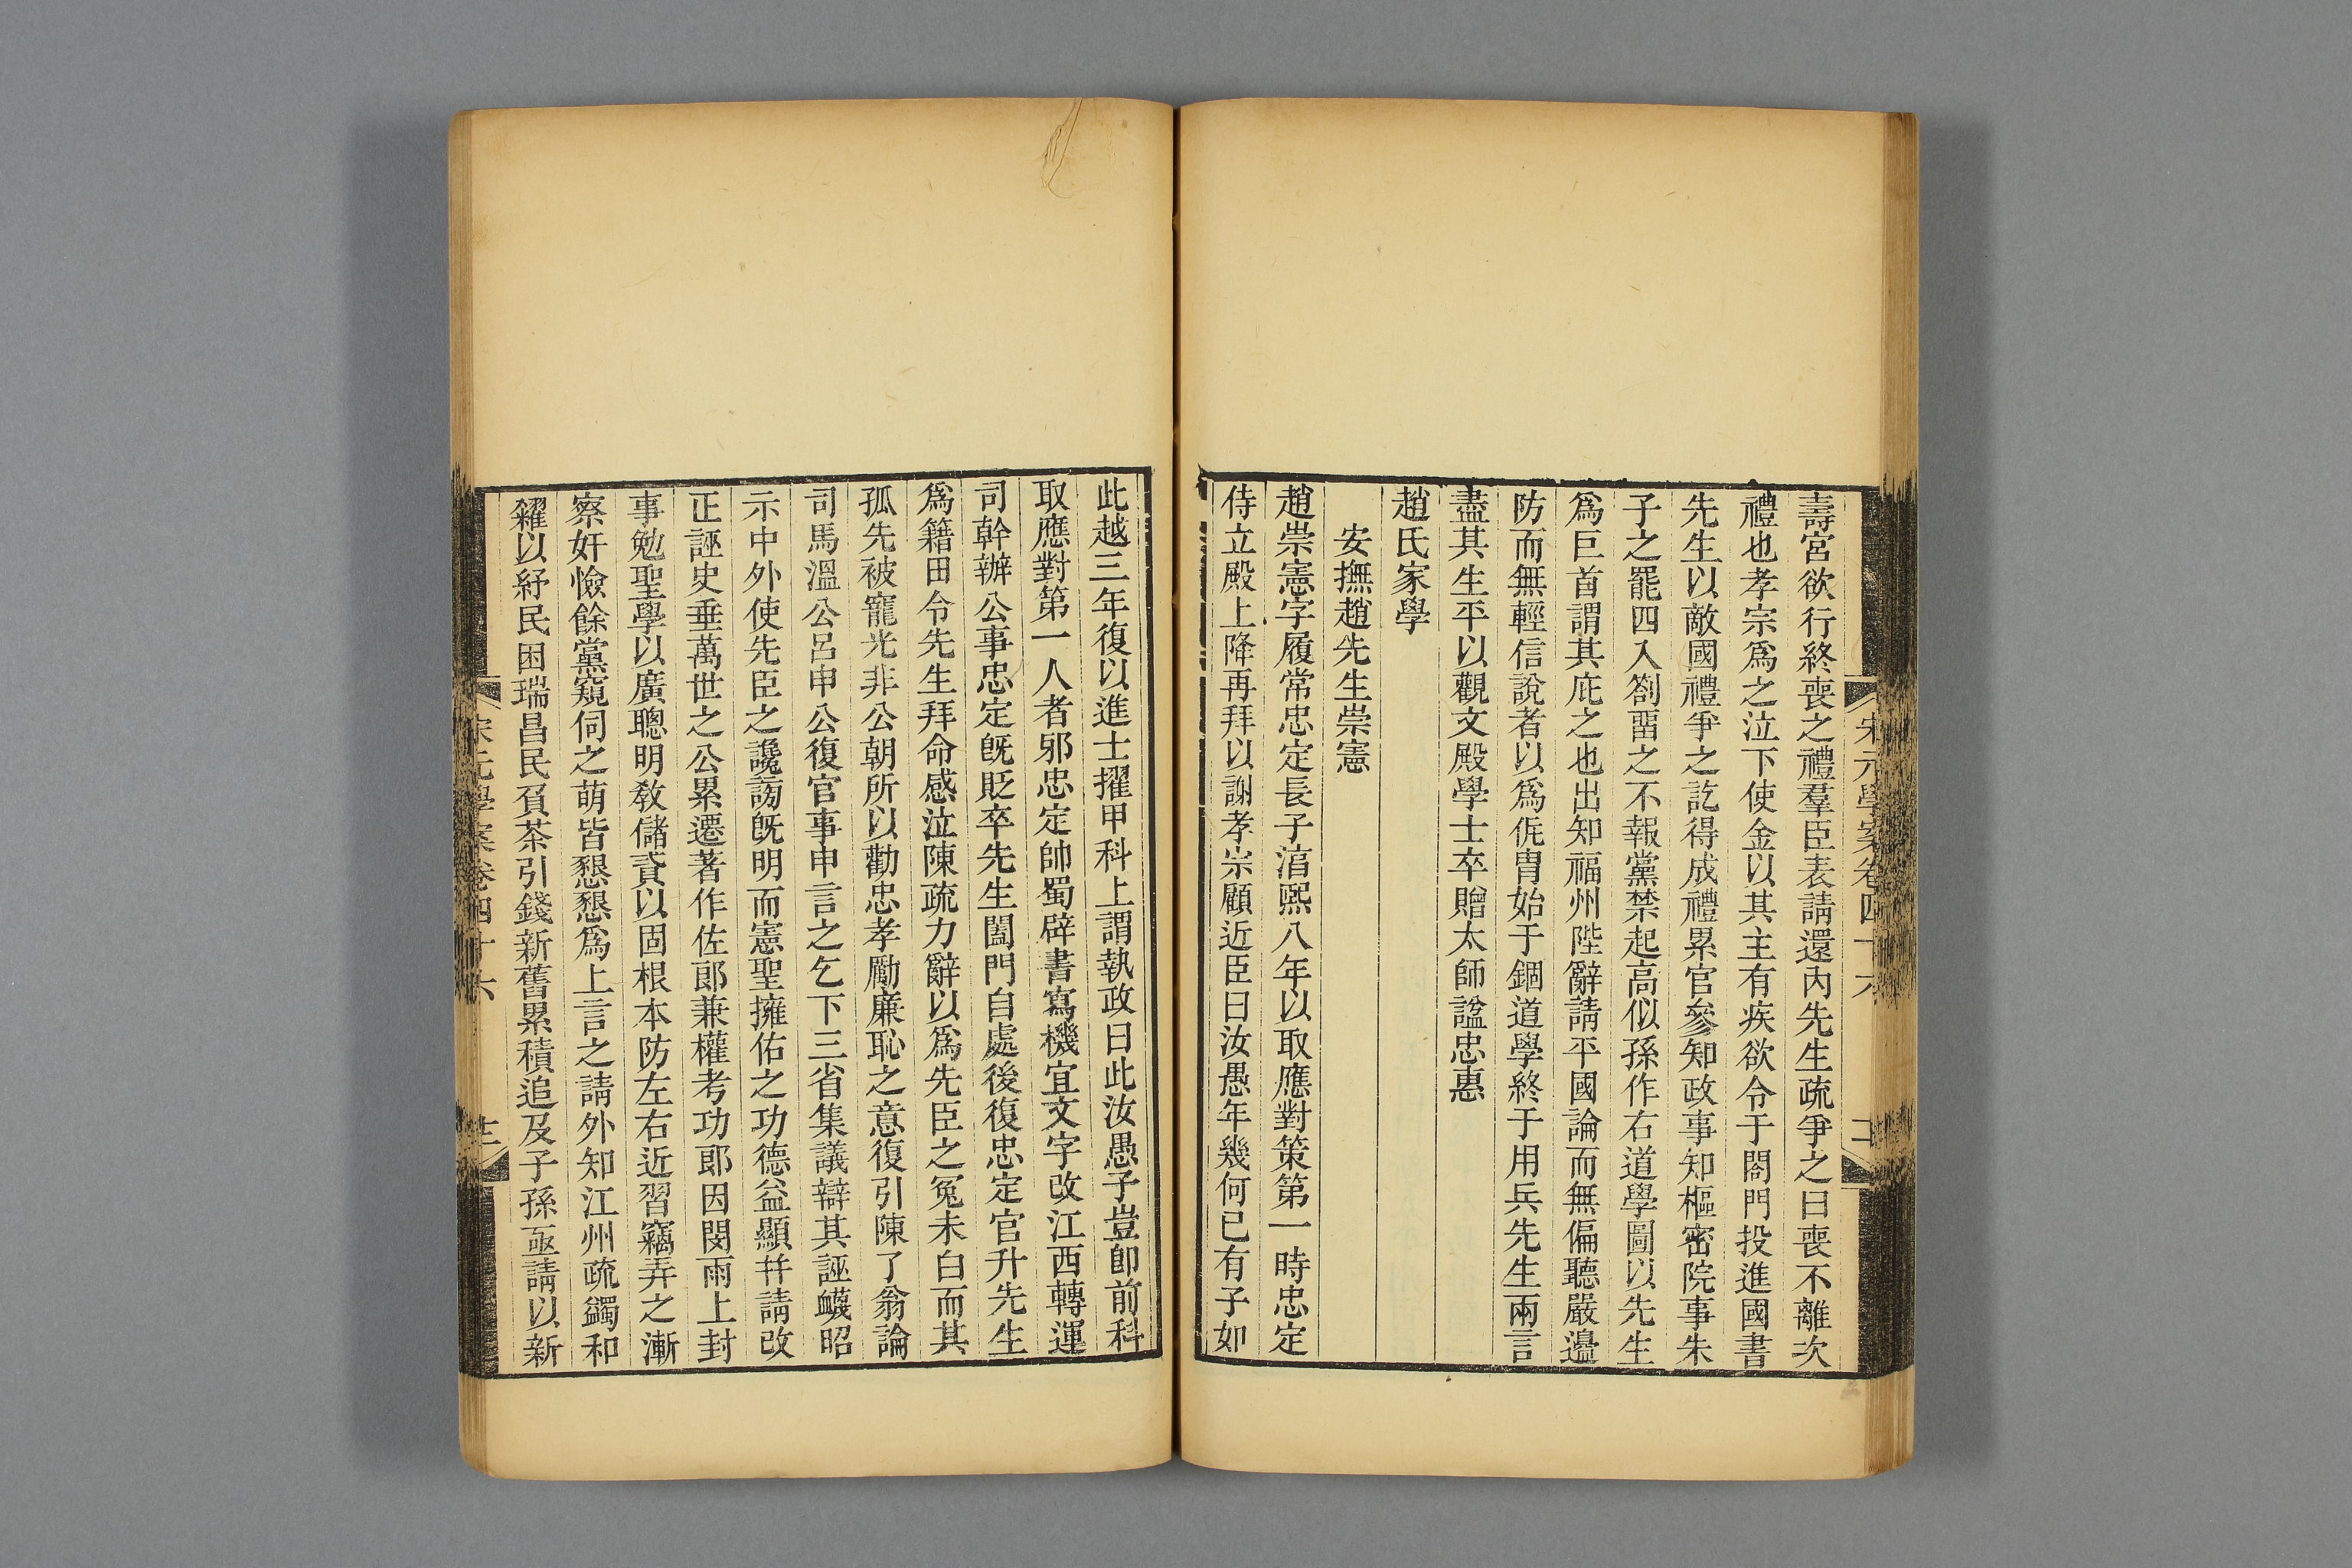 壽宮欲行終喪之禮羣臣表請還內先生疏爭之曰喪不離次
禮也孝宗爲之泣下使金以其主有疾欲令于閤門投進國書
先生以敵國禮爭之訖得成禮累官參知政事知樞密院事朱
子之罷四入劄畱之不報黨禁起高似孫作右道學圖以先生
爲巨首謂其庇之也出知福州陛辭請平國論而無偏聽嚴邊
防而無輕信說者以爲侂冑始于錮道學終于用兵先生兩言
盡其生平以觀文殿學士卒贈太師諡忠惠
趙氏家學
安撫趙先生崇憲
趙崇憲字履常忠定長子淯熙八年以取應對策第一時忠定
侍立殿上降再拜以謝孝宗顧近臣曰汝愚年幾何已有子如
此越三年復以進士擢甲科上謂執政曰此汝愚子豈卽前科
取應對第一人者邪忠定帥蜀辟書寫機宜文字改江西轉運
司幹辦公事忠定旣貶卒先生闔門自處後復忠定官升先生
爲籍田令先生拜命感泣陳疏力辭以爲先臣之冤未白而其
孤先被寵光非公朝所以勸忠孝勵廉恥之意復引陳了翁論
司馬溫公呂申公復官事申言之乞下三省集議辯其誣衊昭
示中外使先臣之讒謗旣明而憲聖擁佑之功德益顯幷請改
正誣史垂萬世之公累遷著作佐郎兼權考功郎因閔雨上封
事勉聖學以廣聰明敎儲貳以固根本防左右近習竊弄之漸
察奸憸餘黨窺伺之萌皆懇懇爲上言之請外知江州疏蠲和
糴以紓民困瑞昌民負茶引錢新舊累積追及子孫亟請以新
宋元學案卷四十六